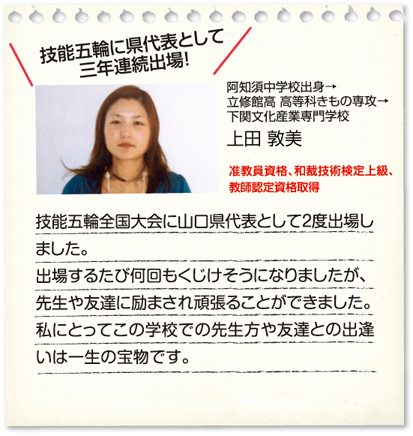 技能五輪に県代表として
三年連続出場!
阿知須中学校出身→
立修館高 高等科きもの専攻→
下関文化産業専門学校
上田 敦美
准教員資格、和裁技術検定上級、
教師認定資格取得
技能五輪全国大会に山口県代表として2度出場し
ました。
出場するたび何回もくじけそうになりましたが、
先生や友達に励まされ頑張ることができました。
私にとってこの学校での先生方や友達との出逢
いは一生の宝物です。